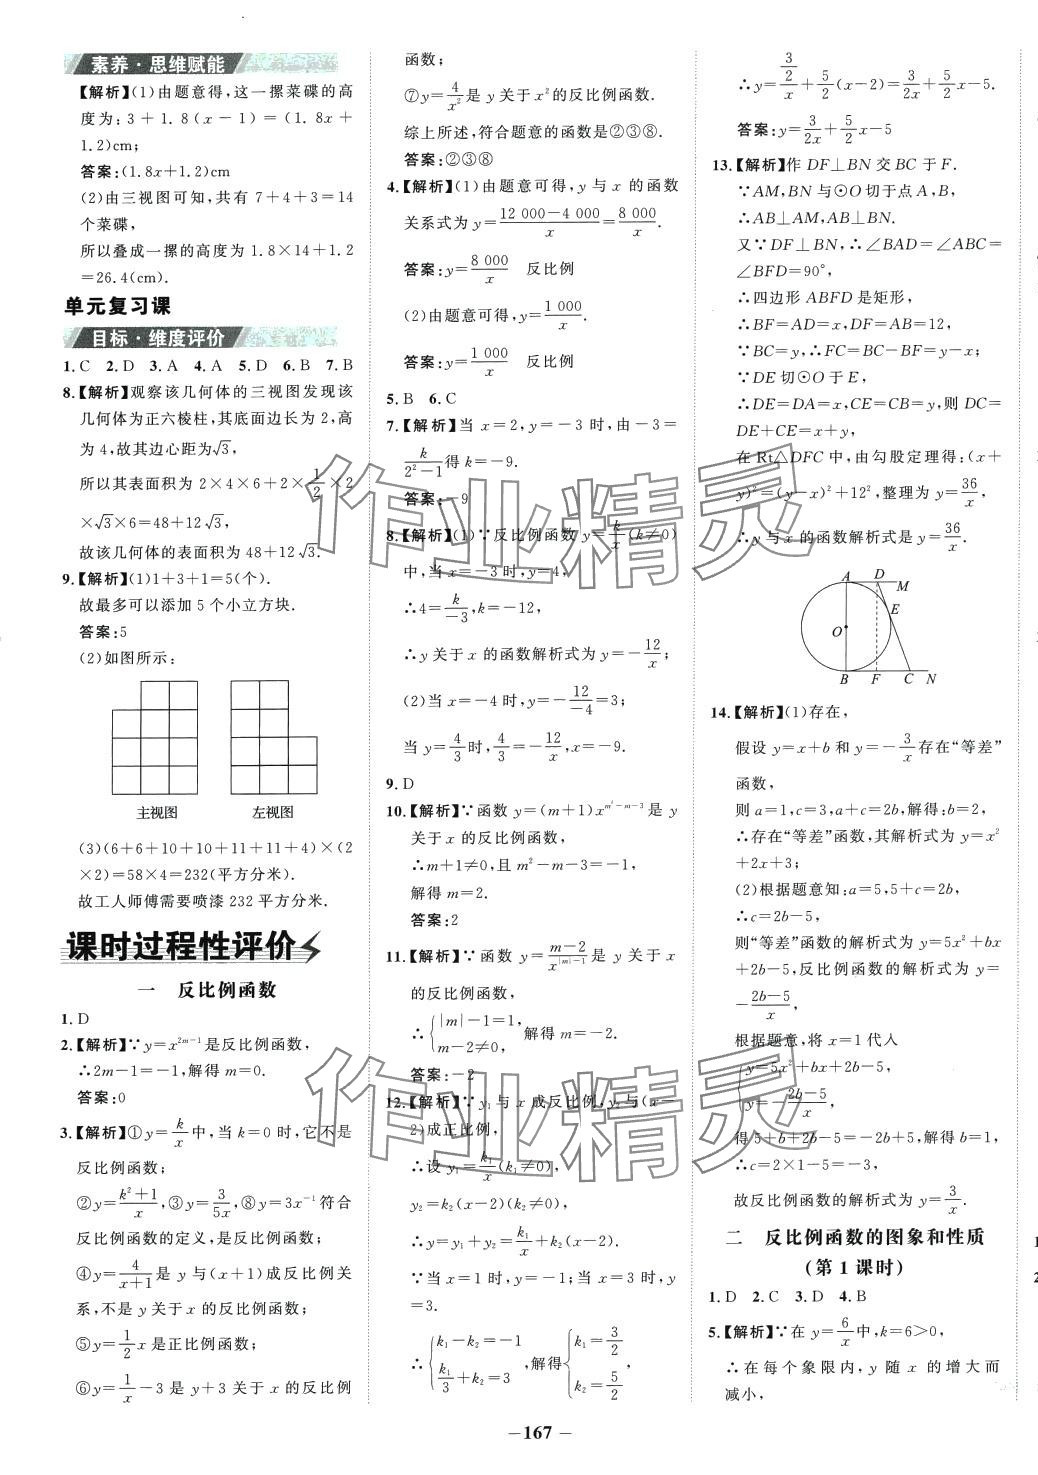 素养·思维赋能
【解析】(1)由题意得,这一摞菜碟的高
度为:3+1.8(x-1)=(1.8x+
1.2)cm;
答案:(1.8x+1.2)cm
(2)由三视图可知,共有7+4+3=14
个菜碟,
所以叠成一摞的高度为1.8×14+1.2
=26.4(cm).
单元复习课
目标·维度评价
1.C 2.D 3.A 4.A 5.D 6.B 7.B
8.【解析】观察该几何体的三视图发现该
几何体为正六棱柱,其底面边长为2,高
为4,故其边心距为√3,
所以其表面积为2×4×6+2×1/2×2
×√3×6=48+12√3,
故该几何体的表面积为48+12√3.
9.【解析】(1)1+3+1=5(个).
故最多可以添加5个小立方块.
答案:5
(2)如图所示:
主视图 左视图
(3)(6+6+10+10+11+11+4)×(2
×2)=58×4=232(平方分米).
故工人师傅需要喷漆232平方分米.
课时过程性评价
一 反比例函数
1.D
2.【解析】∵y=x^(2m-1)是反比例函数,
∴2m-1=-1,解得m=0.
答案:0
3.【解析】①y=k/x中,当k=0时,它不是
反比例函数;
②y=(k²+1)/x,③y=3/(5x),⑧y=3x⁻¹符合
反比例函数的定义,是反比例函数;
④y=4/(x+1)是y与(x+1)成反比例关
系,不是y关于x的反比例函数;
⑤y=1/2 x是正比例函数;
⑥y=1/x-3是y+3关于x的反比例
函数;
⑦y=4/x²是y关于x²的反比例函数.
综上所述,符合题意的函数是②③⑧.
答案:②③⑧
4.【解析】(1)由题意可得,y与x的函数
关系式为y=(12 000-4 000)/x=8 000/x.
答案:y=8 000/x 反比例
(2)由题意可得,y=1 000/x.
答案:y=1 000/x 反比例
5.B 6.C
7.【解析】当x=2,y=-3时,由-3=
k/(2²-1)得k=-9.
答案:-9
8.【解析】(1)∵反比例函数y=k/x(k≠0)
中,当x=-3时,y=4,
∴4=k/(-3),k=-12,
∴y关于x的函数解析式为y=-12/x;
(2)当x=-4时,y=-12/(-4)=3;
当y=4/3时,4/3=-12/x,x=-9.
9.D
10.【解析】∵函数y=(m+1)x^(m²-m-3)是y
关于x的反比例函数,
∴m+1≠0,且m²-m-3=-1,
解得m=2.
答案:2
11.【解析】∵函数y=(m-2)/x^(|m|-1)是y关于x
的反比例函数,
∴{|m|-1=1, m-2≠0, 解得m=-2.
答案:-2
12.【解析】∵y₁与x成反比例,y₂与(x-
2)成正比例,
∴设y₁=k₁/x(k₁≠0),
y₂=k₂(x-2)(k₂≠0),
∴y=y₁+y₂=k₁/x+k₂(x-2).
∵当x=1时,y=-1;当x=3时,y
=3.
∴{k₁-k₂=-1 k₁/3+k₂=3 ,解得{k₁=3/2 k₂=5/2 ,
∴y=(3/2)/x+5/2(x-2)=3/(2x)+5/2x-5.
答案:y=3/(2x)+5/2x-5
13.【解析】作DF⊥BN交BC于F.
∵AM,BN与⊙O切于点A,B,
∴AB⊥AM,AB⊥BN.
又∵DF⊥BN,∴∠BAD=∠ABC=
∠BFD=90°,
∴四边形ABFD是矩形,
∴BF=AD=x,DF=AB=12,
∵BC=y,∴FC=BC-BF=y-x;
∵DE切⊙O于E,
∴DE=DA=x,CE=CB=y,则DC=
DE+CE=x+y,
在Rt△DFC中,由勾股定理得:(x+
y)²=(y-x)²+12²,整理为y=36/x,
∴y与x的函数解析式是y=36/x.
A D M
E
O
B F C N
14.【解析】(1)存在,
假设y=x+b和y=-3/x存在“等差”
函数,
则a=1,c=3,a+c=2b,解得:b=2,
∴存在“等差”函数,其解析式为y=x²
+2x+3;
(2)根据题意知:a=5,5+c=2b,
∴c=2b-5,
则“等差”函数的解析式为y=5x²+bx
+2b-5,反比例函数的解析式为y=
-(2b-5)/x,
根据题意,将x=1代入
{y=5x²+bx+2b-5, y=-(2b-5)/x,
得5+b+2b-5=-2b+5,解得b=1,
∴c=2×1-5=-3,
故反比例函数的解析式为y=3/x.
二 反比例函数的图象和性质
(第1课时)
1.D 2.C 3.D 4.B
5.【解析】∵在y=6/x中,k=6>0,
∴在每个象限内,y随x的增大而
减小,
作业精灵
作业精灵
-167-